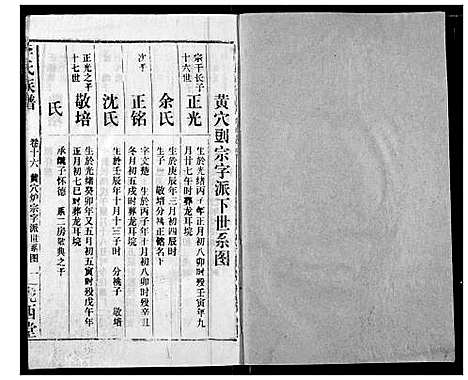 黄穴刭宗字派下世系图
宗干长子
十六世
正光
生於光绪丙子年正月初八卯时殁壬寅年九
月廿七午时葬龙耳垸
余氏
生於庚辰年三月初四辰时
生子 敬培 分祧正铭名下
次子
正铭
字文楚 生於丙子年正月初八卯时殁辛丑
冬月初五戌时葬龙耳垸
沈氏
生於壬辰年十月十三子时 分祧子 敬培
正光之子
十七世
敬培
生於光绪癸卯年又五月初五寅时殁戊午年
正月初七巳时葬龙耳垸
氏
承继子怀德 系二房敬典之子
氏族谱
卷十六 黄穴炉宗字派世系图
一
西堂